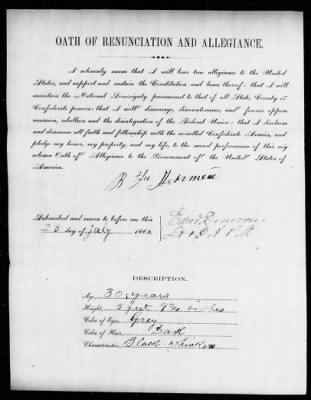 OATH OF RENUNCIATION AND ALLEGIANCE.
I solemnly swear that I will bear true allegiance to the United
States, and support and sustain the Constitution and laws thereof; that I will
maintain the National Sovereignty paramount to that of all State, County or
Confederate powers; that I will discourage, discountenance, and forever oppose
secession, rebellion and the disintegration of the Federal Union; that I disclaim
and denounce all faith and fellowship with the so-called Confederate Armies, and
pledge my honor, my property, and my life, to the sacred performance of this my
solemn Oath of Allegiance to the Government of the United States of
America.
R
Subscribed and sworn to before me this
23 day of July 186
DESCRIPTION.
Age, 30 years
Height, 5 feet inches
Color of Eyes, Grey
Color of Hair, Dark
Characteristics, Black Whiskers